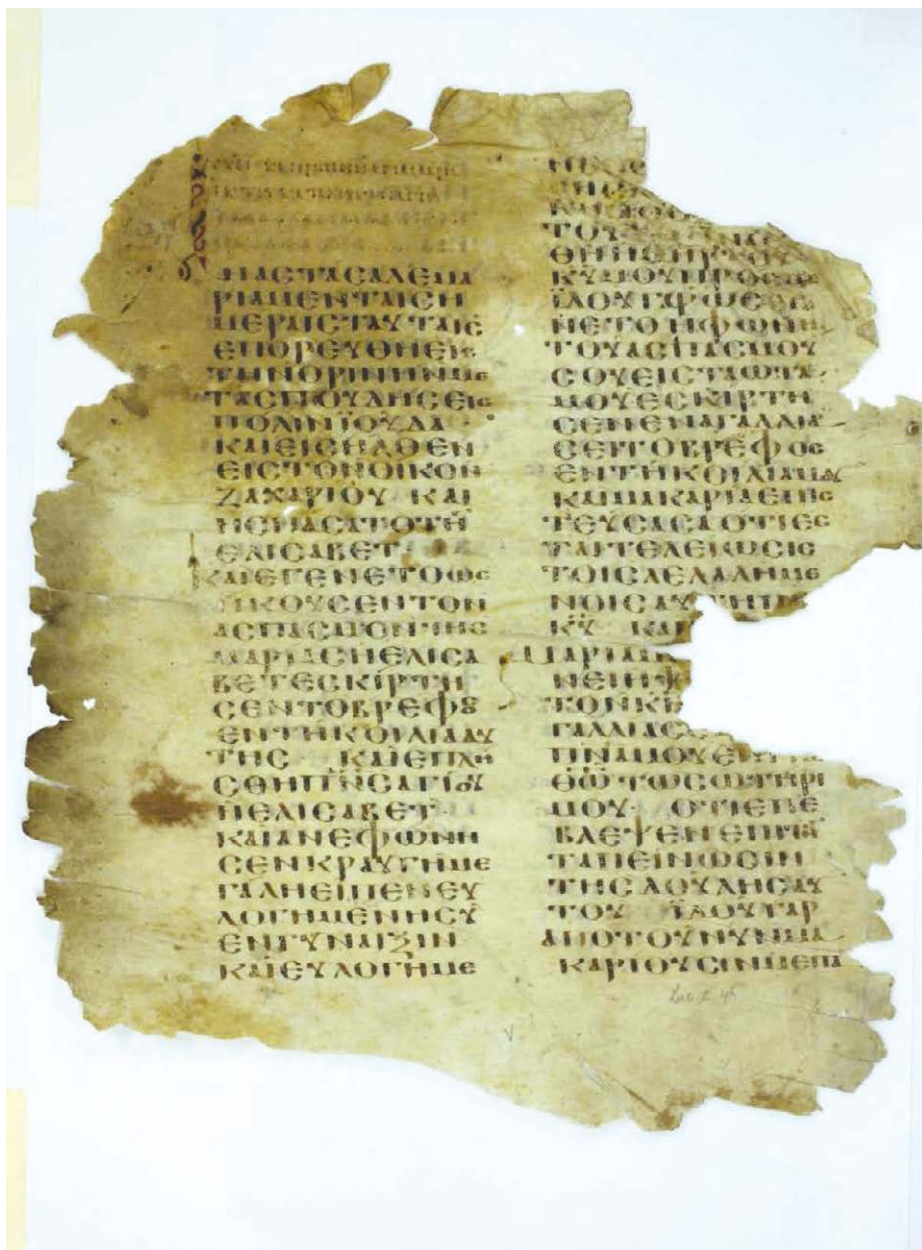 ΝΑϹΤΑϹΑΔΕΜΑ
ΡΙΑΜΕΝΤΑΙϹΗ
ΜΕΡΑΙϹΤΑΥΤΑΙϹ
ΕΠΟΡΕΥΘΗΕΙϹ
ΤΗΝΟΡΙΝΗΝΜΕ
ΤΑϹΠΟΥΔΗϹΕΙϹ
ΠΟΛΙΝΪΟΥΔΑ·
ΚΑΙΕΙϹΗΛΘΕΝ
ΕΙϹΤΟΝΟΙΚΟΝ
ΖΑΧΑΡΙΟΥ ΚΑΙ
ΗϹΠΑϹΑΤΟΤΗ̅
ΕΛΙϹΑΒΕΤ·
ΚΑΙΕΓΕΝΕΤΟΩϹ
ΗΚΟΥϹΕΝΤΟΝ
ΑϹΠΑϹΜΟΝΤΗϹ
ΜΑΡΙΑϹΗΕΛΙϹΑ
ΒΕΤΕϹΚΙΡΤΗ
ϹΕΝΤΟΒΡΕΦΟϹ
ΕΝΤΗΚΟΙΛΙΑΑΥ
ΤΗϹ ΚΑΙΕΠΛΗ
ϹΘΗΠ̅Ν̅ϹΑΓΙΟΥ
ΗΕΛΙϹΑΒΕΤ·
ΚΑΙΑΝΕΦΩΝΗ
ϹΕΝΚΡΑΥΓΗΜΕ
ΓΑΛΗΕΙΠΕΝΕΥ
ΛΟΓΗΜΕΝΗϹΥ
ΕΝΓΥΝΑΙΞΙΝ
ΚΑΙΕΥΛΟΓΗΜΕ
ΘΗΗΜΗΤΗΡΤΟΥ
Κ̅Υ̅ΜΟΥΠΡΟϹΜΕ
ΪΔΟΥΓΑΡΩϹΕΓΕ
ΝΕΤΟΗΦΩΝΗ
ΤΟΥΑϹΠΑϹΜΟΥ
ϹΟΥΕΙϹΤΑΩΤΑ
ΜΟΥΕϹΚΙΡΤΗ
ϹΕΝΕΝΑΓΑΛΛΙΑ
ϹΕΙΤΟΒΡΕΦΟϹ
ΕΝΤΗΚΟΙΛΙΑΜΟΥ
ΚΑΙΜΑΚΑΡΙΑΕΙΠΙϹ
ΤΕΥϹΑϹΑΟΤΙΕϹ
ΤΑΙΤΕΛΕΙΩϹΙϹ
ΤΟΙϹΛΕΛΑΛΗΜΕ
ΝΟΙϹΑΥΤΗΠ
Κ̅Υ̅ ΚΑΙ
ΜΑΡΙΑΜ
ΝΕΙΗΨ
ΤΟΝΚ̅
ΓΑΛΛΙΑϹ
Π̅Ν̅Α̅ΜΟΥΕ
Θ̅Ω̅ΤΩϹΩΤΗΡΙ
ΜΟΥ· ΟΤΙΕΠΕ
ΒΛΕΨΕΝΕΠΙΤΗ̅
ΤΑΠΕΙΝΩϹΙΝ
ΤΗϹΔΟΥΛΗϹΑΥ
ΤΟΥ ΪΔΟΥΓΑΡ
ΑΠΟΤΟΥΝΥΝΜΑ
ΚΑΡΙΟΥϹΙΝΜΕΠΑ